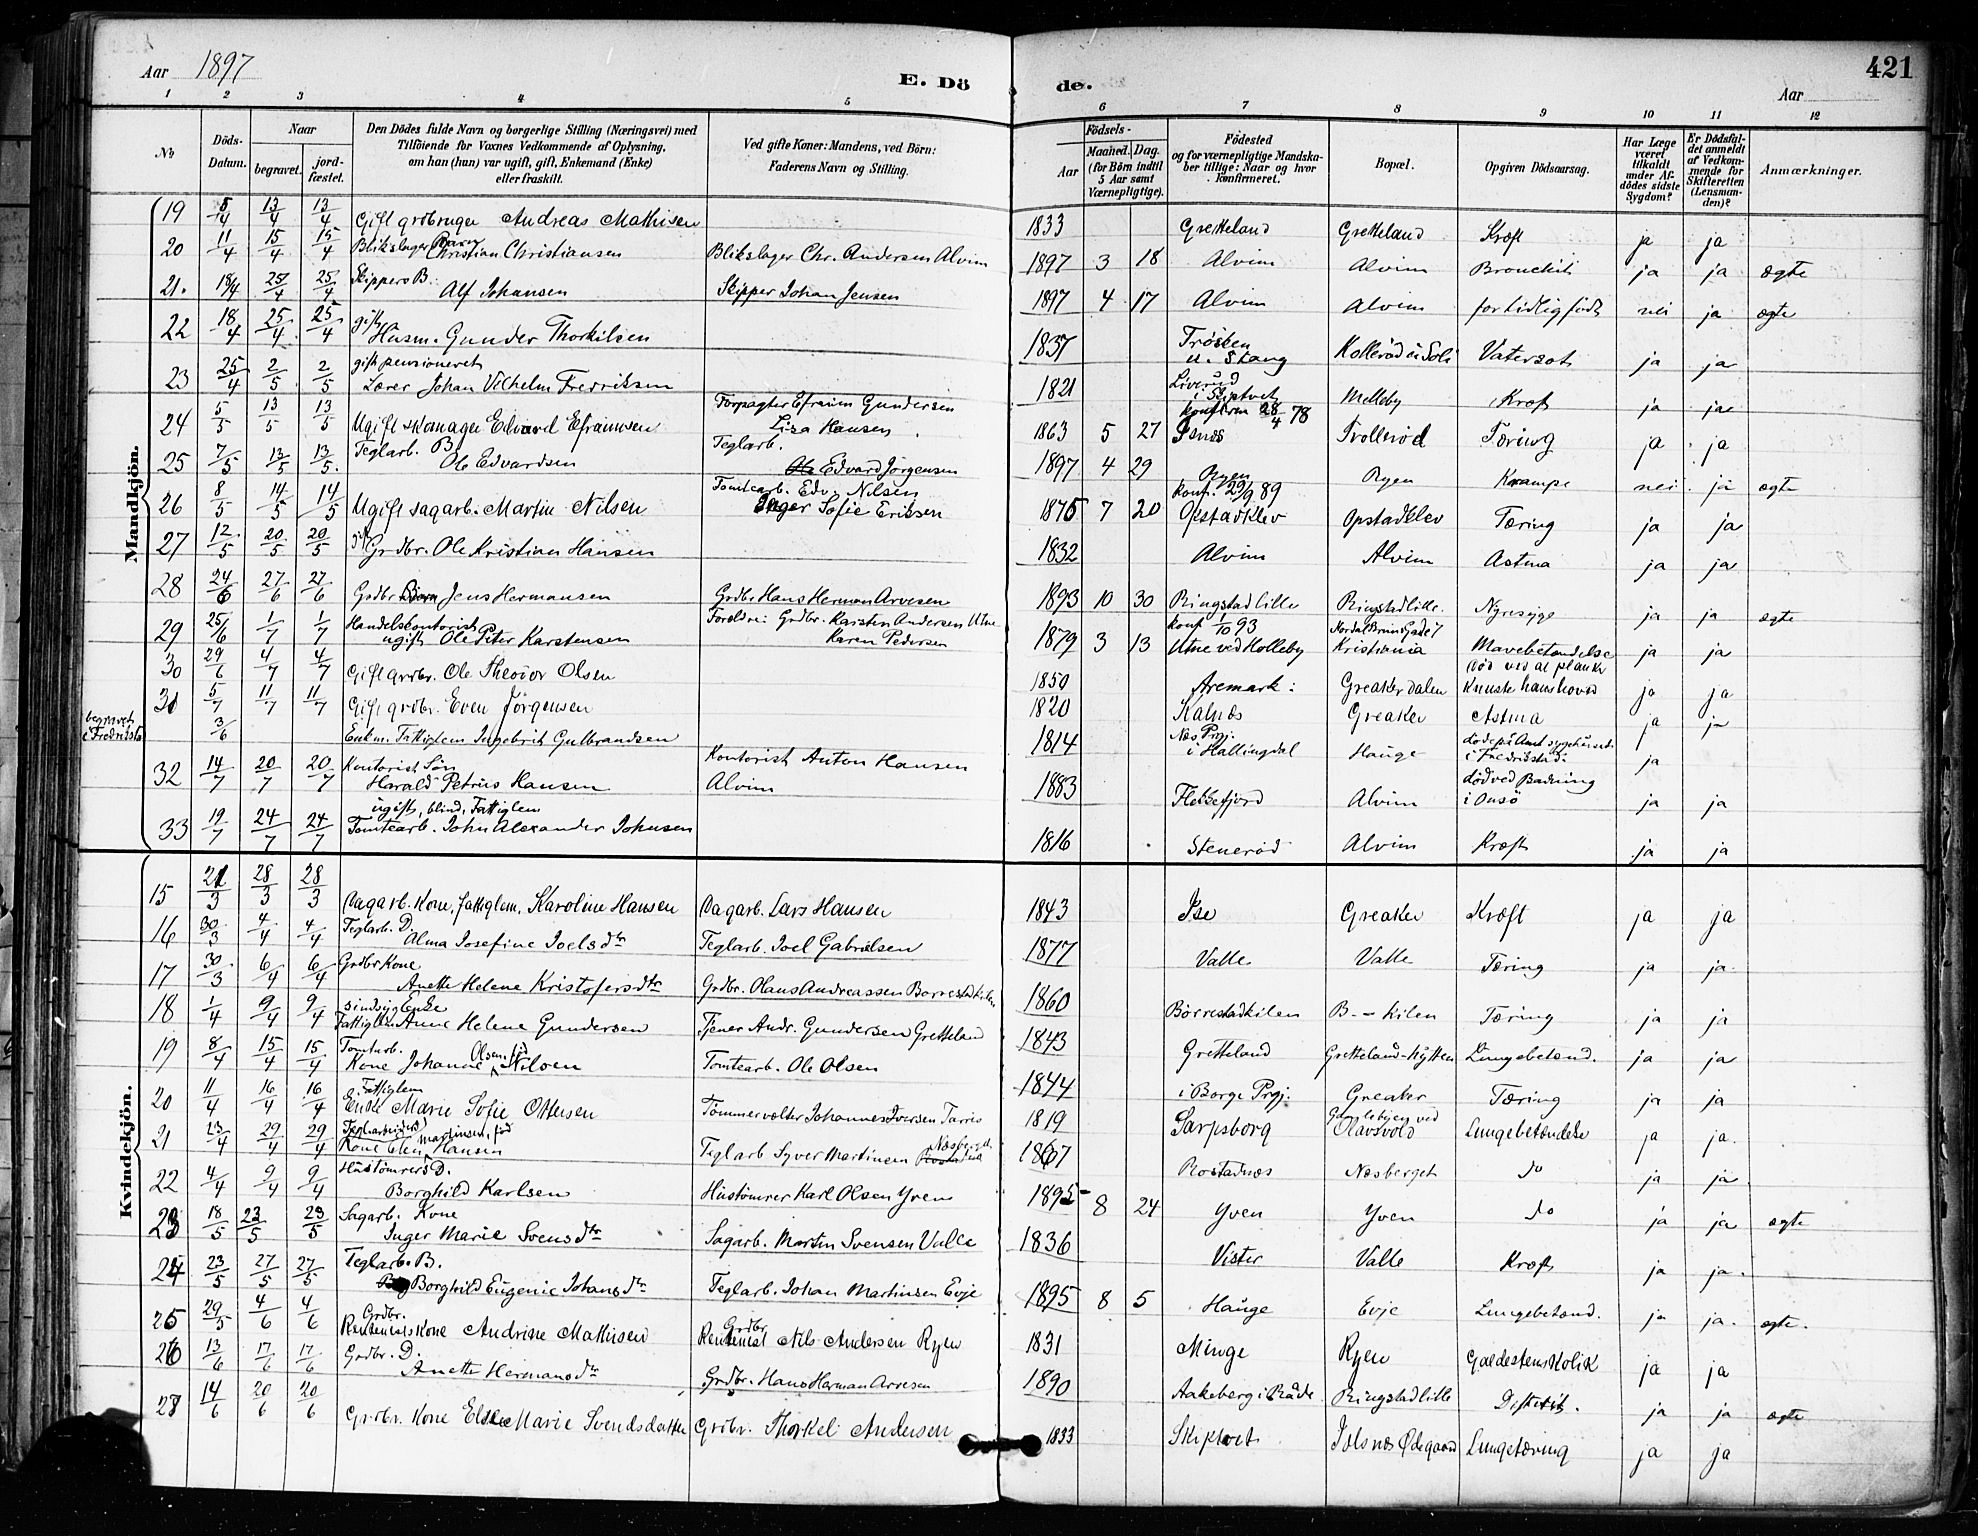 Aar 1897
E. Döde.
421
Aar
1 2 3 4 5 6 7 8 9 10 11 12
No
Döds-Datum.
Naar begravet. jordfæstet.
Den Dödes fulde Navn og borgerlige Stilling (Næringsvei) med Tilföiende for Voxnes Vedkommende af Oplysning, om han (hun) var ugift, gift, Enkemand (Enke) eller fraskilt.
Ved gifte Koner: Mandens, ved Börn: Faderens Navn og Stilling.
Födsels-
Aar Maaned. Dag. (for Börn indtil 5 Aar samt Værnepligtige).
Födested og for værnepligtige Mandskaber tillige: Naar og hvor konfirmeret.
Bopæl.
Opgiven Dödsaarsag.
Har Læge været tilkaldt under Afdödes sidste Sygdom?
Er Dödsfaldet anmeldt af Vedkommende for Skifteretten (Lensmanden)?
Anmærkninger.
Mandkjön.
19 5/4 13/4 13/4 Gift grdbruger Andreas Mathisen 1833 Gretteland Gretteland Kræft ja ja
20 11/4 15/4 15/4 Blikslager Barn Christian Christiansen Blikslager Chr. Andersen Alvim 1897 3 18 Alvim Alvim Bronckit ja ja ægte
21. 18/4 25/4 25/4 Skippers B. Alf Johansen Skipper Johan Jensen 1897 4 17 Alvim Alvim for tidlig født nei ja ægte
22 18/4 25/4 25/4 gift Husm. Gunder Thorkilsen 1837 Trösken u. Stang Kolleröd i Soli Vatersot ja ja
23 25/4 2/5 2/5 gift pensioneret Lærer Johan Vilhelm Fredriksen 1821 Liverud i Skiptvet Melleby Kræft ja ja
24 5/5 13/5 13/5 Ugift skomager Edvard Efraimsen Forpagter Efraim Gundersen Lisa Hansen 1863 5 27 konfirm 28/4 78 Isnes Trollerød Tæring ja ja
25 7/5 13/5 13/5. Teglarb. B. Ole Edvardsen Teglarb. Edvard Jörgensen 1897 4 29 Ryen Ryen Krampe nei ja ægte
26 8/5 14/5 14/5 Ugift sagarb. Martin Nilsen Tomtearb. Edv. Nilsen Inger Sofie Eriksen 1875 7 20 konf. 29/9 89 Opstadklev Opstadklev Tæring ja ja
27 12/5 20/5 20/5 gift Grdbr. Ole Kristian Hansen 1832 Alvim Alvim Astma ja ja
28 24/6 27/6 27/6 Grdbr Barn Jens Hermansen Grdbr Hans Herman Arvesen 1893 10 30 Ringstad lille Ringstad lille. Nyresyge ja ja ægte
29 25/6 1/7 1/7 Handelskontorist ugift Ole Peter Karstensen Foreldre: Grdbr. Karsten Andersen Utne Karen Pedersen 1879 3 13 konf 1/10 93 Utne ved Holleby Nordal Bruns Gade 7 Kristiania Mavebetændelse ja ja
30 29/6 4/7 4/7 Gift grdbr. Ole Theodor Olsen 1850 Aremark: Greakerdalen Död ved at planke knuste hans hoved ja ja
31 5/7 11/7 11/7 Gift grdbr. Even Jørgensen 1820 Kalnæs Greaker Astma ja ja
begravet i Fredrikstad 3/6 Enkm. Fattiglem Ingebrit Gulbrandsen 1814 Næs Prgj. i Hallingdal Hauge døde på Amt sygehuset i Fredrikstad. ja
32 14/7 20/7 20/7 Kontorist Søn Harald Petrus Hansen Kontorist Anton Hansen Alvim 1883 Flekkefjord Alvim død ved Badning i Onsø ja ja
33 19/7 24/7 24/7 ugift, blind, Fattiglem Tomtearb. John Alexander Johnsen 1816 Stenerød Alvim Kræft ja ja
Kvindekjön.
15 21/3 28/3 28/3 Dagarb. Kone, fattiglem, Karoline Hansen Dagarb. Lars Hansen 1843 Ise Greaker Kræft ja ja
16 30/3 4/4 4/4 Teglarb. D. Alma Josefine Joelsdtr Teglarb. Joel Gabrielsen 1877 Valle Valle Tæring ja ja
17 30/3 6/4 6/4 Grdbr Kone Anette Helene Kristofersdtr Grdbr. Olaus Andreassen Borrestadkilen 1860 Börrestadkilen B. - Kilen Tæring ja ja
18 1/4 9/4 9/4 sindsyg Enke Fattiglem Anne Helene Gundersen Tjener Andr. Gundersen Gretteland 1843 Gretteland Gretteland-hytten Lungebetænd. ja ja
19 8/4 15/4 15/4 Tomtarb. Kone Johanne Olsen, fød Nilsen Tomtearb. Ole Olsen 1844 i Borge Prgj. Greaker Tæring ja ja
20 11/4 16/4 16/4 Fattiglem Enke Marie Sofie Ottesen Tömmervælter Johannes Iversen Tarris 1819 Sarpsborg Gamlebyen ved Olavsvold Lungebetændelse ja ja
21 23/4 29/4 29/4 Teglarbeiders Kone Elen Martinsen, fød Hansen Teglarb Syver Martinsen Næsberget 1867 Rostadnæs Næsberget do ja ja
22 4/4 9/4 9/4 Hustømrers D. Borghild Karlsen Hustømrer Karl Olsen Yven 1895 8 24 Yven Yven do ja ja ægte
23 18/5 23/5 23/5 Sagarb. Kone Inger Marie Svensdtr Sagarb. Martin Svensen Valle 1836 Vister Valle Kræft ja ja.
24 23/5 27/5 27/5 Teglarb. B. Borghild Eugenie Johansdtr Teglarb. Johan Martinsen Evje 1895 8 5 Hauge Evje Lungebetænd. ja ja. ægte.
25 29/5 4/6 4/6 Grdbr. Rentenists Kone Andrine Mathisen Grdbr Rentenist Nils Andersen Ryen 1831 Minge Ryen Galdestens Kolik ja ja
26 13/6 17/6 17/6 Grdbr. D. Anette Hermansdtr Grdbr. Hans Herman Arvesen 1890 Aakeberg i Råde Ringstad lille Difterit. ja ja ægte
27 14/6 20/6 20/6 Grdbr. Kone Else Marie Svendsdatter Grdbr. Thorkel Andersen 1833 Skiptvet Isnes Ødegaard Lungetæring ja ja